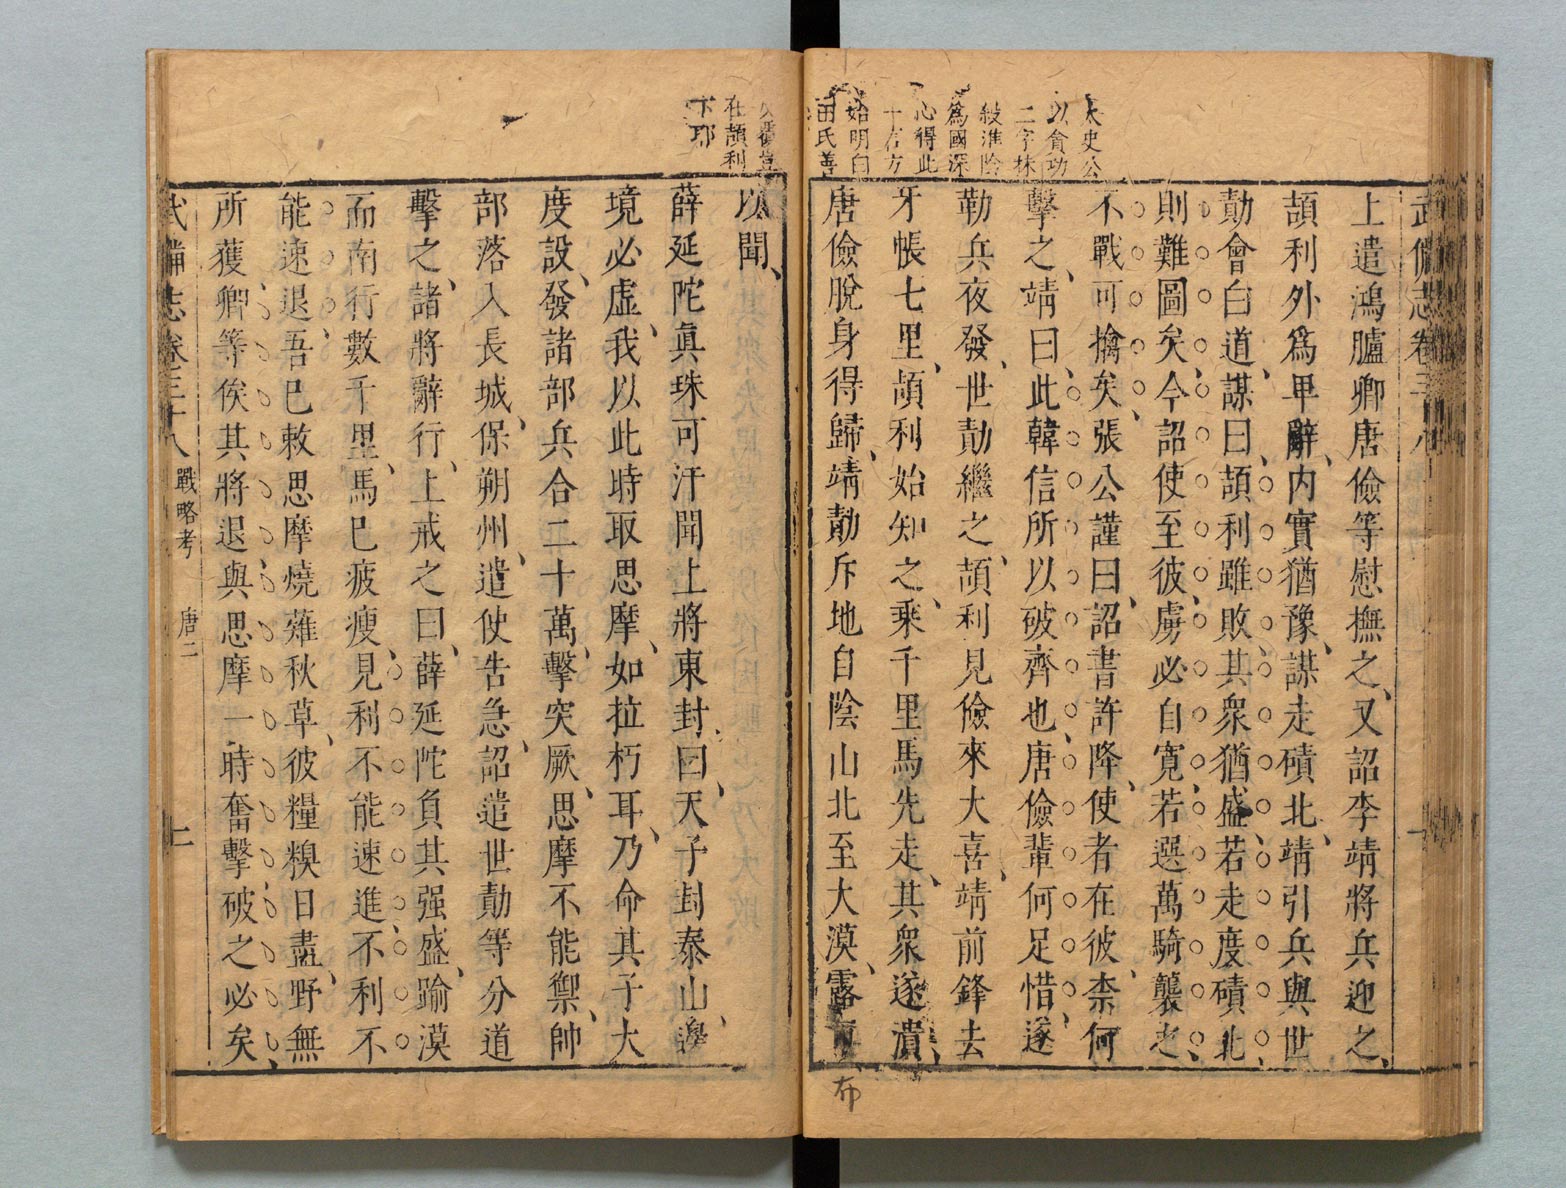 武備志卷三十八
太史公
以貪功
二字抹
殺淮陰
為國深
心得此
十右方
始明白
田氏善
上遣鴻臚卿唐儉等慰撫之、又詔李靖將兵迎之、
頡利外爲卑辭、内實猶豫、謀走磧北、靖引兵與世
勣會白道、謀曰、頡利雖敗、其衆猶盛、若走度磧北、
則難圖矣、今詔使至彼、虜必自寬、若選萬騎襲之、
不戰可擒矣、張公謹曰、詔書許降、使者在彼、柰何
擊之、靖曰、此韓信所以破齊也、唐儉輩何足惜、遂
勒兵夜發、世勣繼之、頡利見儉來大喜、靖前鋒去
牙帳七里、頡利始知之、乘千里馬先走、其衆遂潰、
唐儉脫身得歸、靖勣斥地自陰山北至大漠、露
布
在頡利
下耶
以聞、
薛延陀眞珠可汗聞上將東封、曰、天子封泰山、邊
境必虛、我以此時取思摩、如拉朽耳、乃命其子大
度設、發諸部兵合二十萬、擊突厥、思摩不能禦、帥
部落入長城、保朔州、遣使告急、詔遣世勣等分道
擊之、諸將辭行、上戒之曰、薛延陀負其强盛、踰漠
而南、行數千里、馬巳疲瘦、見利不能速進、不利不
能速退、吾巳敕思摩燒薙秋草、彼糧糗日盡、野無
所獲、卿等俟其將退、與思摩一時奮擊破之必矣、
武備志卷三十八 戰略考 唐二 十